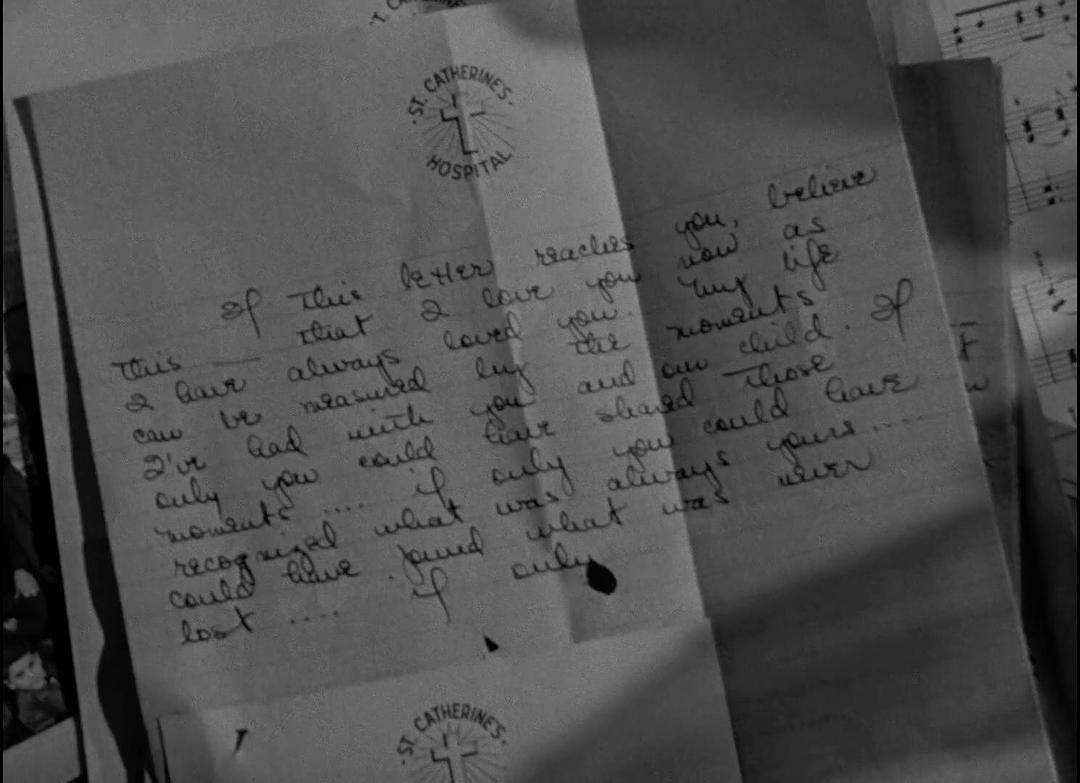 ST. CATHERINE'S
HOSPITAL
If this letter reaches you, believe
this — that I love you now as
I have always loved you. my life
can be measured by the moments
I've had with you and our child. If
only you could have shared those
moments .... if only you could have
recognized what was always yours....
could have found what was never
lost .... if only
ST. CATHERINE'S